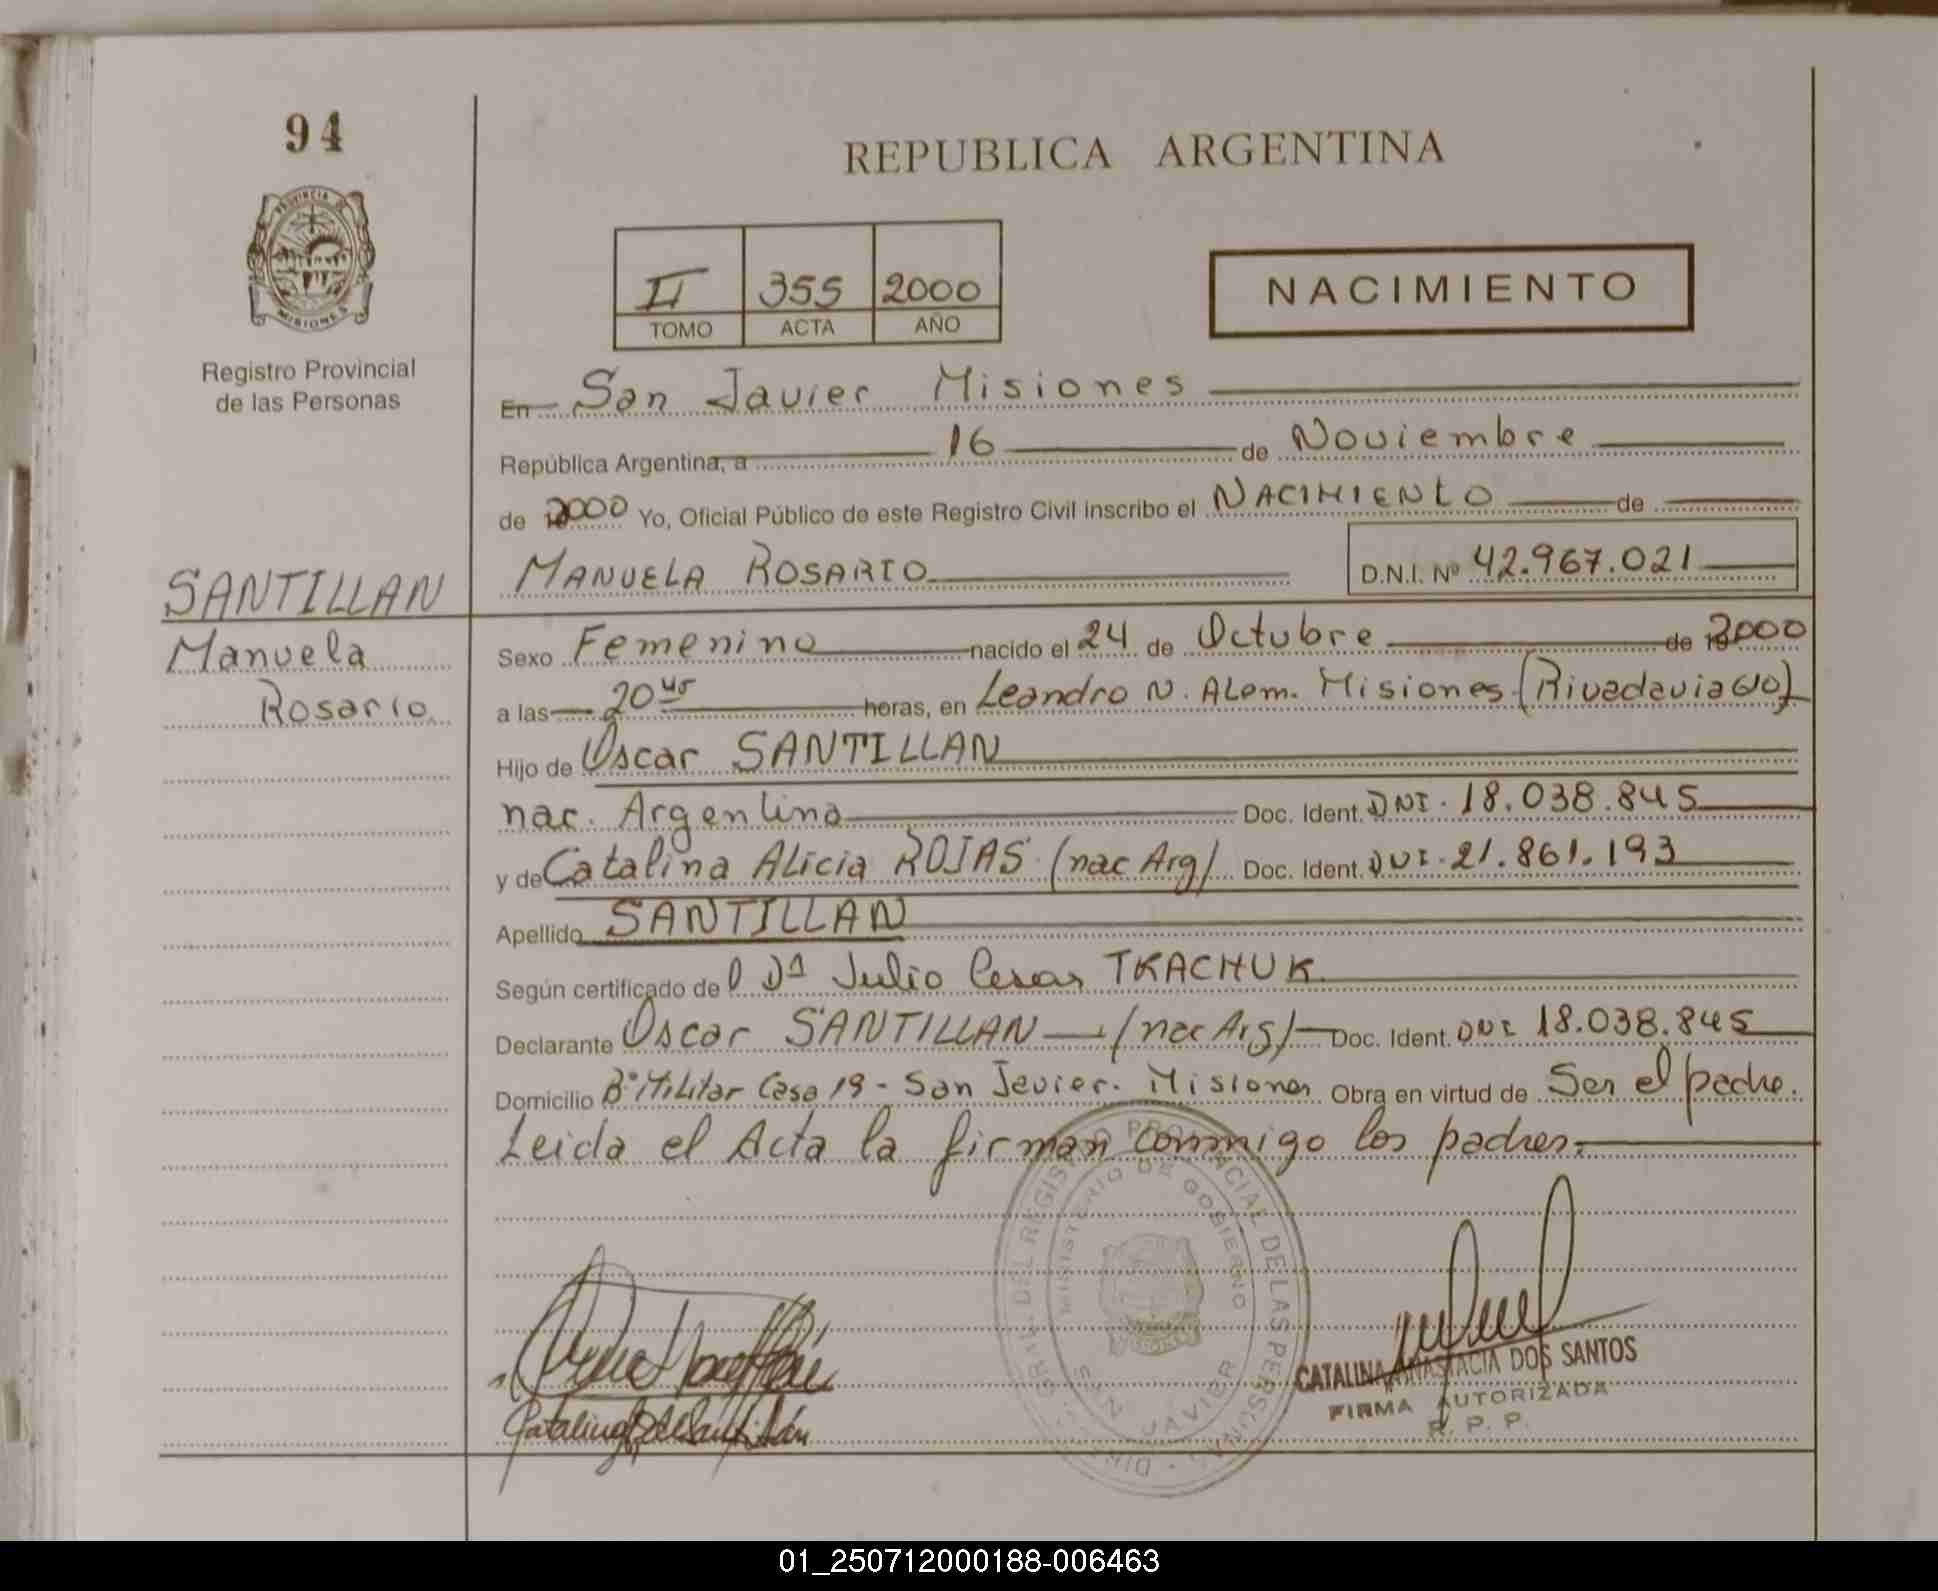 94
REPUBLICA ARGENTINA
PROVINCIA DE
MISIONES
II 355 2000
TOMO ACTA AÑO
NACIMIENTO
Registro Provincial
de las Personas
En San Javier Misiones
República Argentina, a 16 de Noviembre
de 2000 Yo, Oficial Público de este Registro Civil inscribo el NACIMIENTO de
MANUELA ROSARIO D.N.I. Nº 42.967.021
SANTILLAN
Manuela
Rosario
Sexo Femenino nacido el 24 de Octubre de 2000
a las 20 45 horas, en Leandro N. Alem. Misiones (Rivadavia
Hijo de Oscar SANTILLAN
nac. Argentina Doc. Ident. DNI. 18.038.845
y de Catalina Alicia ROJAS (nac Arg) Doc. Ident. DNI. 21.861.193
Apellido SANTILLAN
Según certificado de Julio Cesar TKACHUK
Declarante Oscar SANTILLAN (nac Arg) Doc. Ident. DNI 18.038.845
Domicilio B° Militar Casa 19 - San Javier. Misiones Obra en virtud de Ser el padre.
Leida el Acta la firman conmigo los padres.
DIREC. GRAL. DEL REGISTRO PROVINCIAL DE LAS PERSONAS
MINISTERIO DE GOBIERNO
SAN JAVIER
CATALINA ANASTACIA DOS SANTOS
FIRMA AUTORIZADA
R. P. P.
01_250712000188-006463